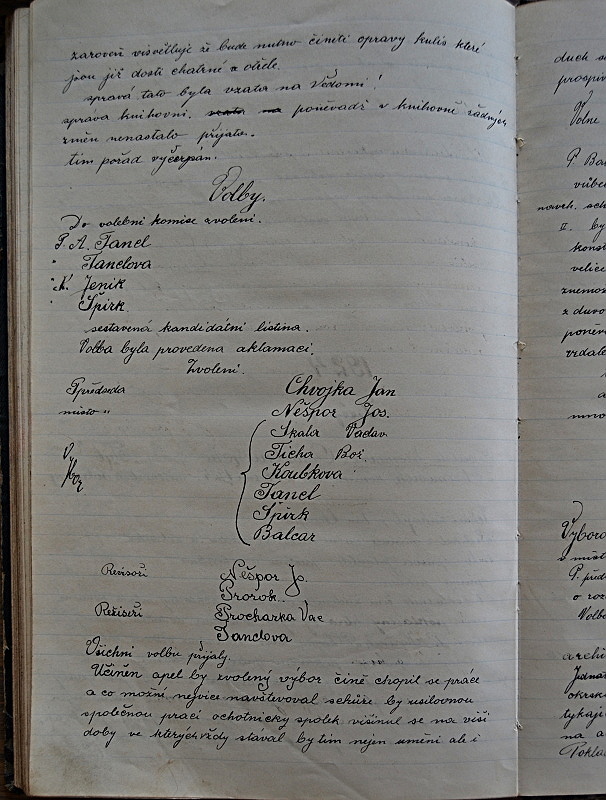 zároveň visvětluje že bude nutno činiti opravy kulis které
jsou již dosti chatrné a otřelé.
spravá tato byla vzata na vědomí!
správa knihovní. vzata na poněvadž v knihovně žádných
změn nenastalo přijato.
tím pořad vyčerpán.
Volby.
Do volební komise zvoleni.
P. A. Tancl
" Tanclova
" K. Jeník
" Špirk
sestavená kandidátní listina.
Volba byla provedena aklamací.
Zvoleni.
Předseda Chvojka Jan
místo " Nešpor Jos.
Výbor
Skala Vaclav
Tichá Bož.
Koubková
Tancl
Špirk
Balcar
Revisoři Nešpor Js.
Prorok
Režiseři Procharka Vac
Tanclova
Všichni volbu přijaly.
Učiněn apel by zvolený výbor čině chopil se práce
a co možní nejvice navštěvoval schůze by usilovnou
společnou prací ochotnický spolek višinul se na viši
doby ve kterých vždy stával by tím nejen umění ale i
duch s
prospiv
Volne
P. Bal
vůbec
navrh. sch
II. by
konst
velice
znemož
z důvo
poněv
vzdale
a
mno
Výboro
P. před
o roz
Volbo
archi
Jedna
okrsk
tykaj
na a
Poklad